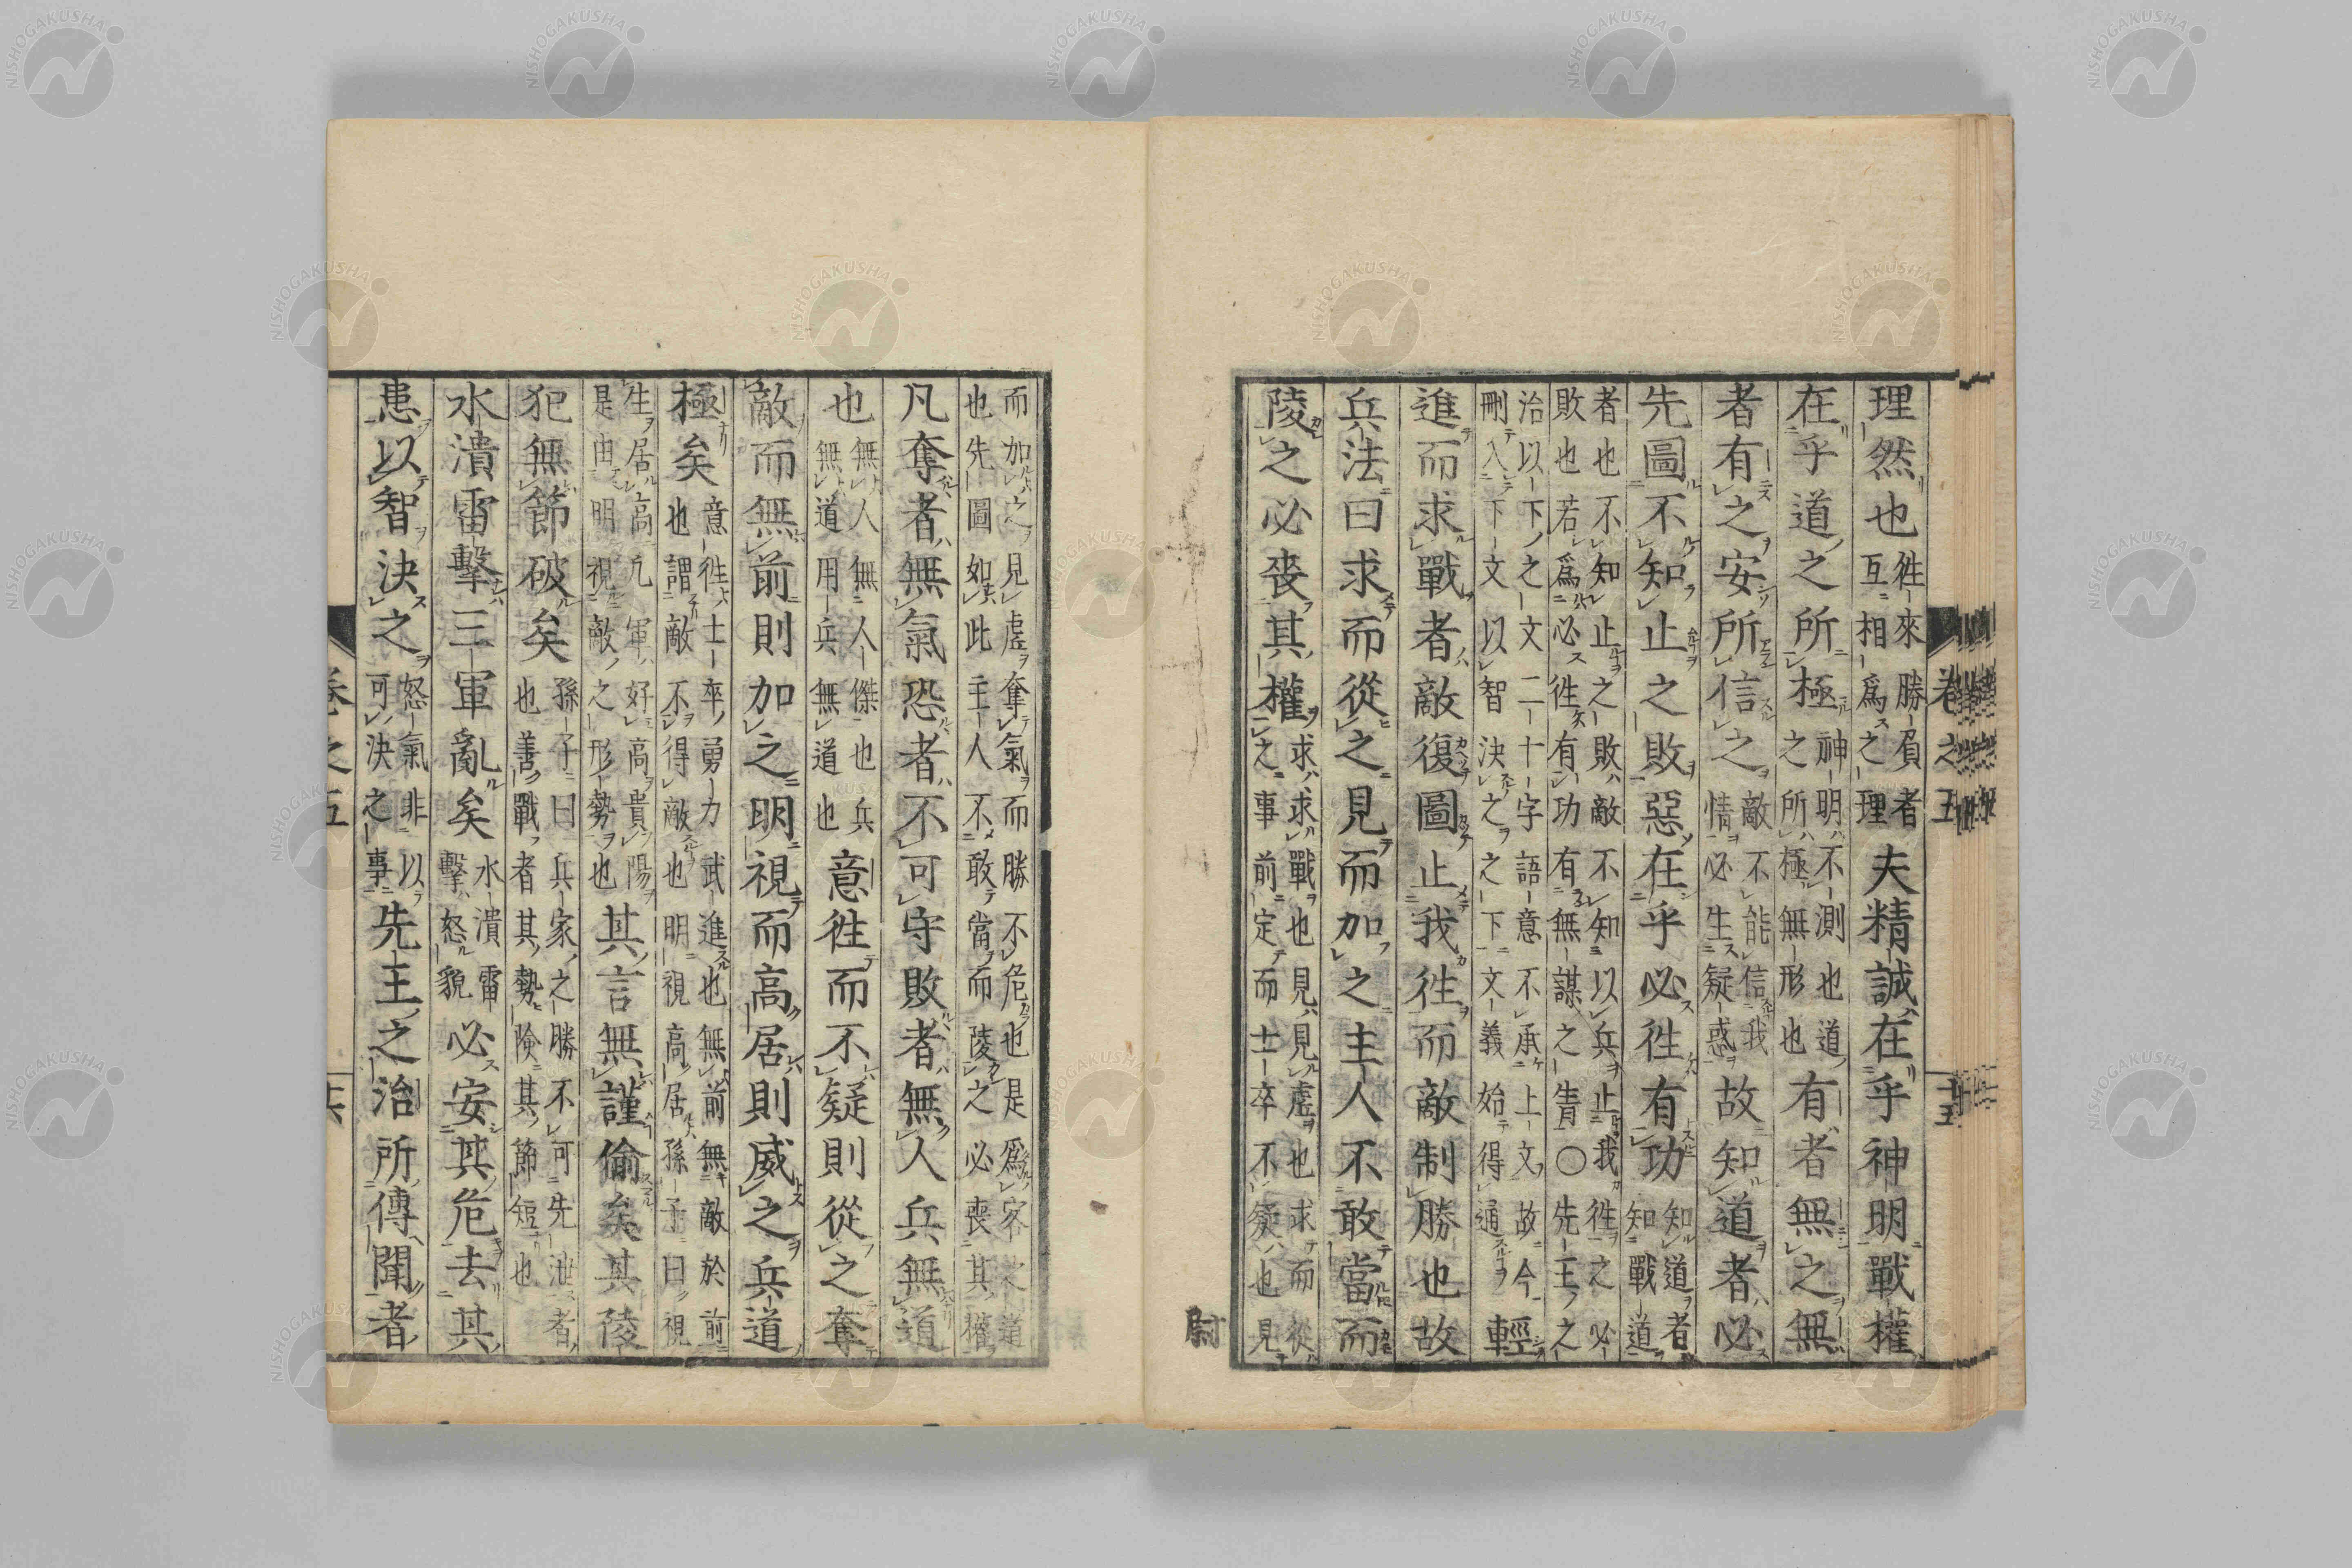 卷之五
十五
理然也徃來勝負者
互相爲之理夫精誠在乎神明戰權
在乎道之所極神明不測也道
之所極無形也有者無之無
者有之安所信之敵不能信我
情必生疑惑故知道者必
先圖不知止之敗惡在乎必徃有功知道者
知戰道
者也不知止之敗敵不知以兵止我徃之必
敗也若爲必徃有功有無謀之眚〇先王之
治以下之文二十字語意不承上文故今
刪入下文以智決之之下文義始得通輕
進而求戰者敵復圖止我徃而敵制勝也故
兵法曰求而從之見而加之主人不敢當而
陵之必喪其權求求戰也見見虛也求而從
之事前定而士卒不疑也見
尉
而加之見虛奪氣而勝不危也是爲客之道
也先圖如此主人不敢當而陵之必喪其權
凡奪者無氣恐者不可守敗者無人兵無道
也無人無人傑也兵
無道用兵無道也意徃而不疑則從之奪
敵而無前則加之明視而高居則威之兵道
極矣意徃士卒勇力武進也無前無敵於前
也謂敵不得敵也明視高居孫子曰視
生居高凡軍好高貴陽
是由明視敵之形勢也其言無謹偷矣其陵
犯無節破矣孫子曰兵家之勝不可先泄者
也善戰者其勢険其節短也
水潰雷擊三軍亂矣水潰雷
擊怒貌必安其危去其
患以智決之怒氣非以
可決之事先王之治所傳聞者
卷之五
十六